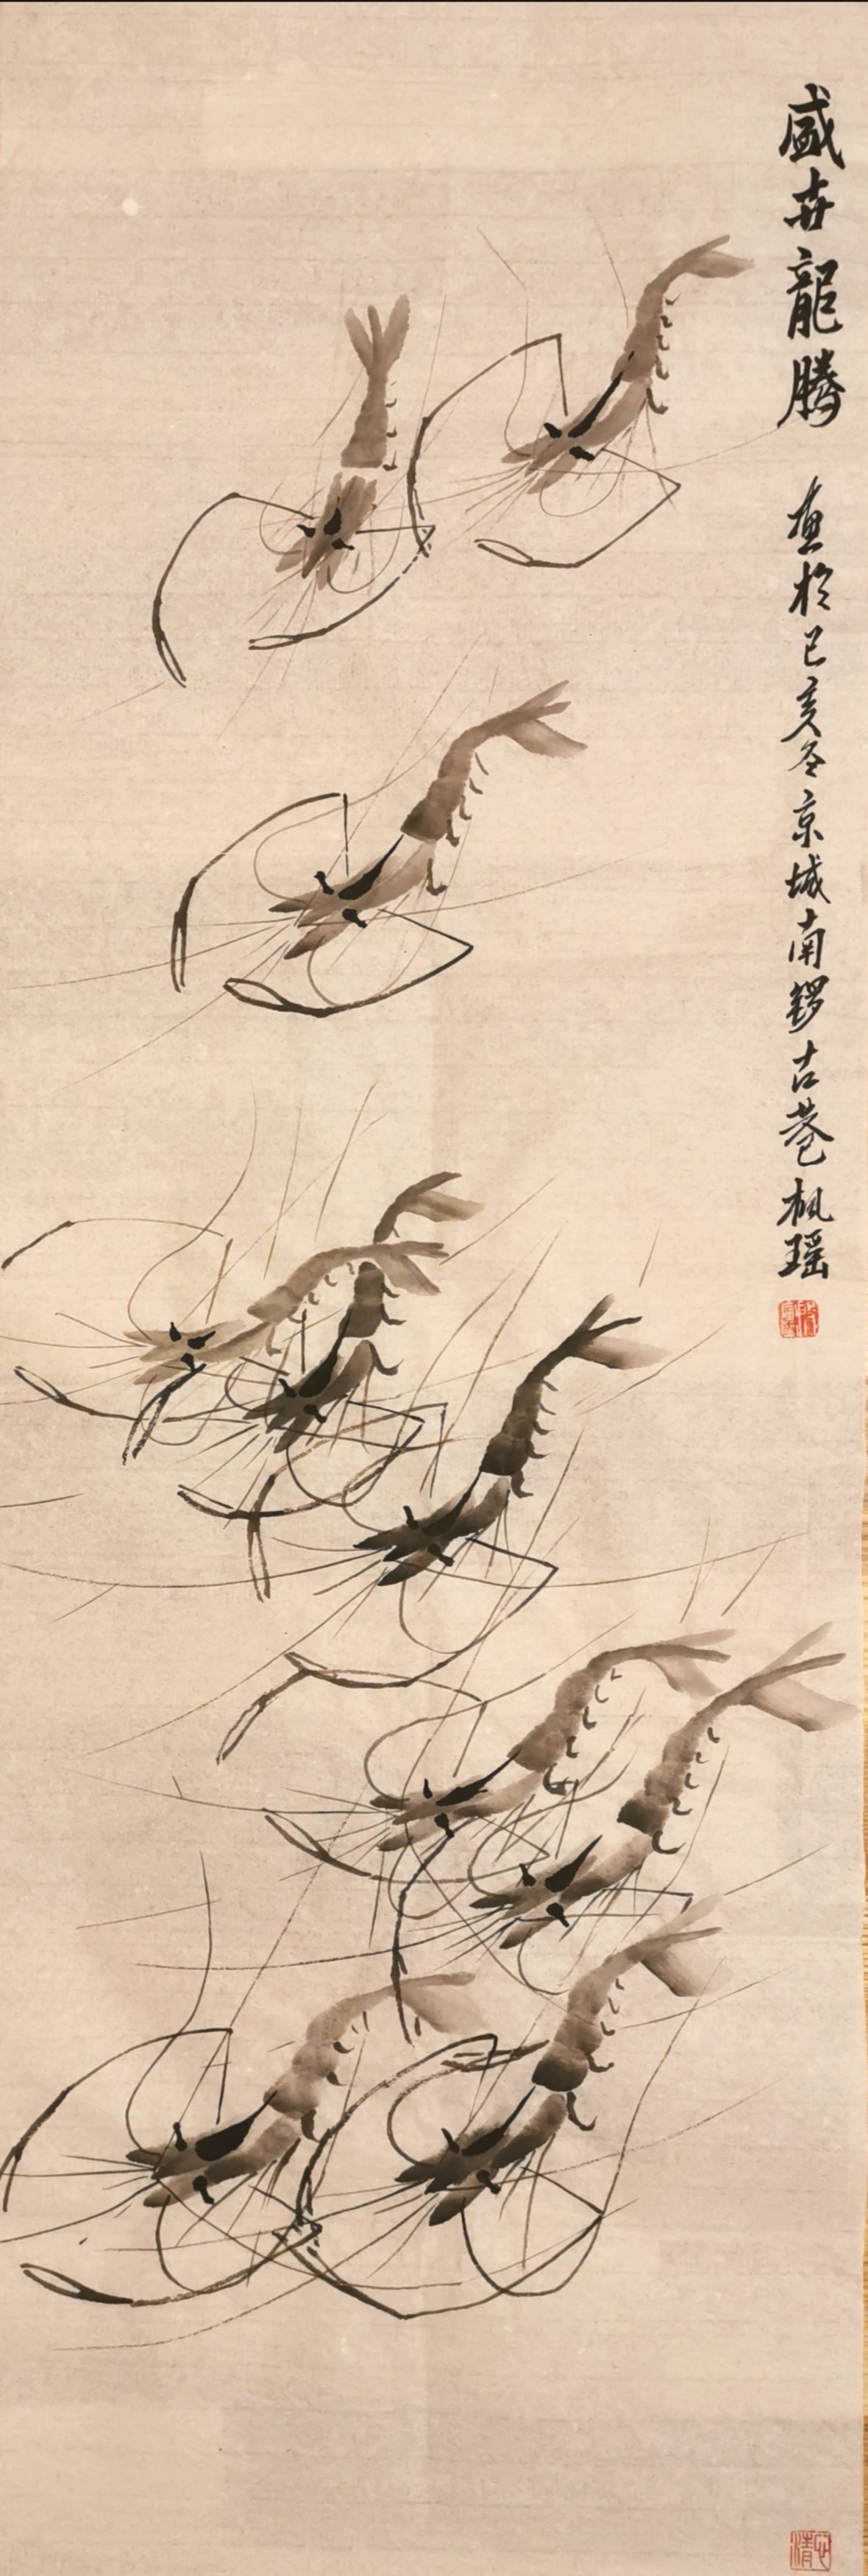 盛世龍騰 画於己亥冬京城南锣古巷 枫瑶